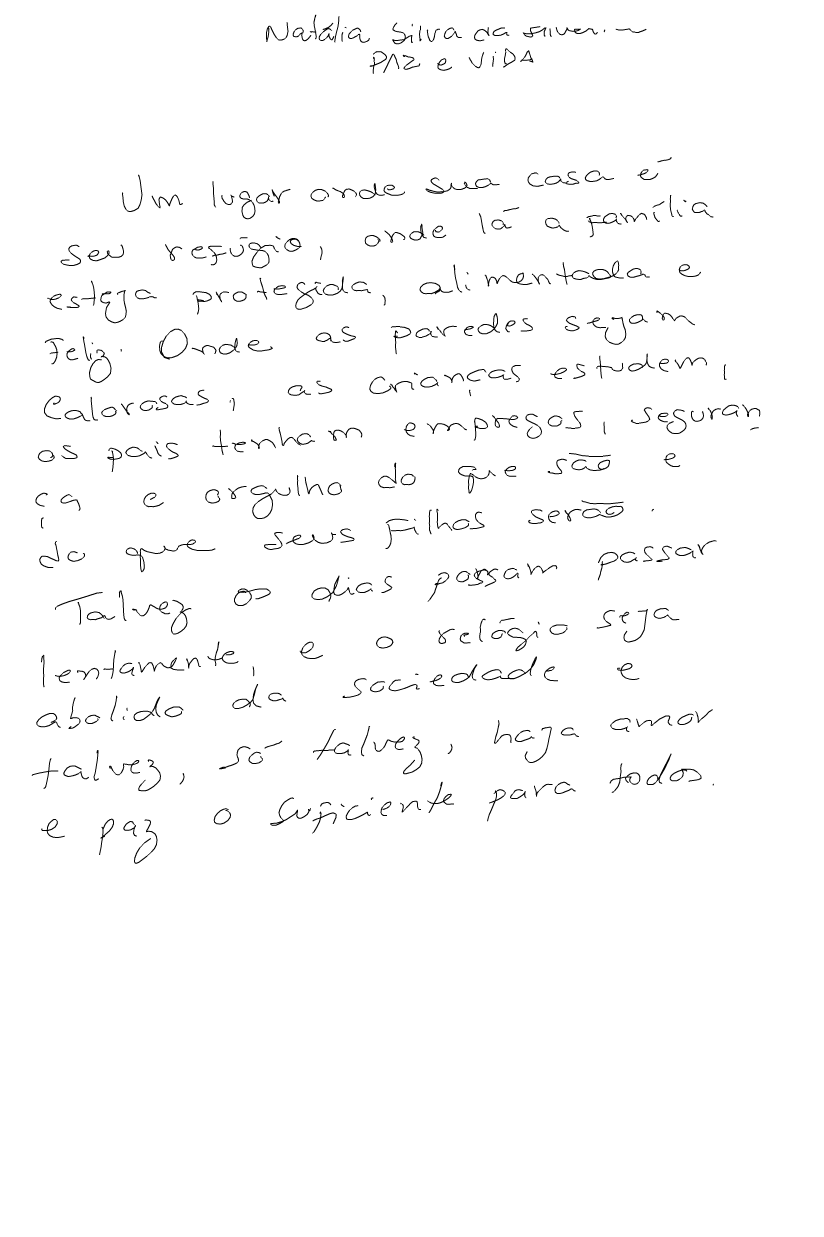 Natália Silva da
PAZ e ViDA
Um lugar onde sua casa é
seu refúgio, onde lá a família
esteja protegida, alimentada e
Feliz. Onde as paredes sejam
Calorosas, as crianças estudem,
os pais tenham empregos, seguran
ça e orgulho do que são e
do que seus Filhos serão.
Talvez os dias possam passar
lentamente, e o relógio seja
abolido da sociedade e
talvez, só talvez, haja amor
e paz o suficiente para todos.